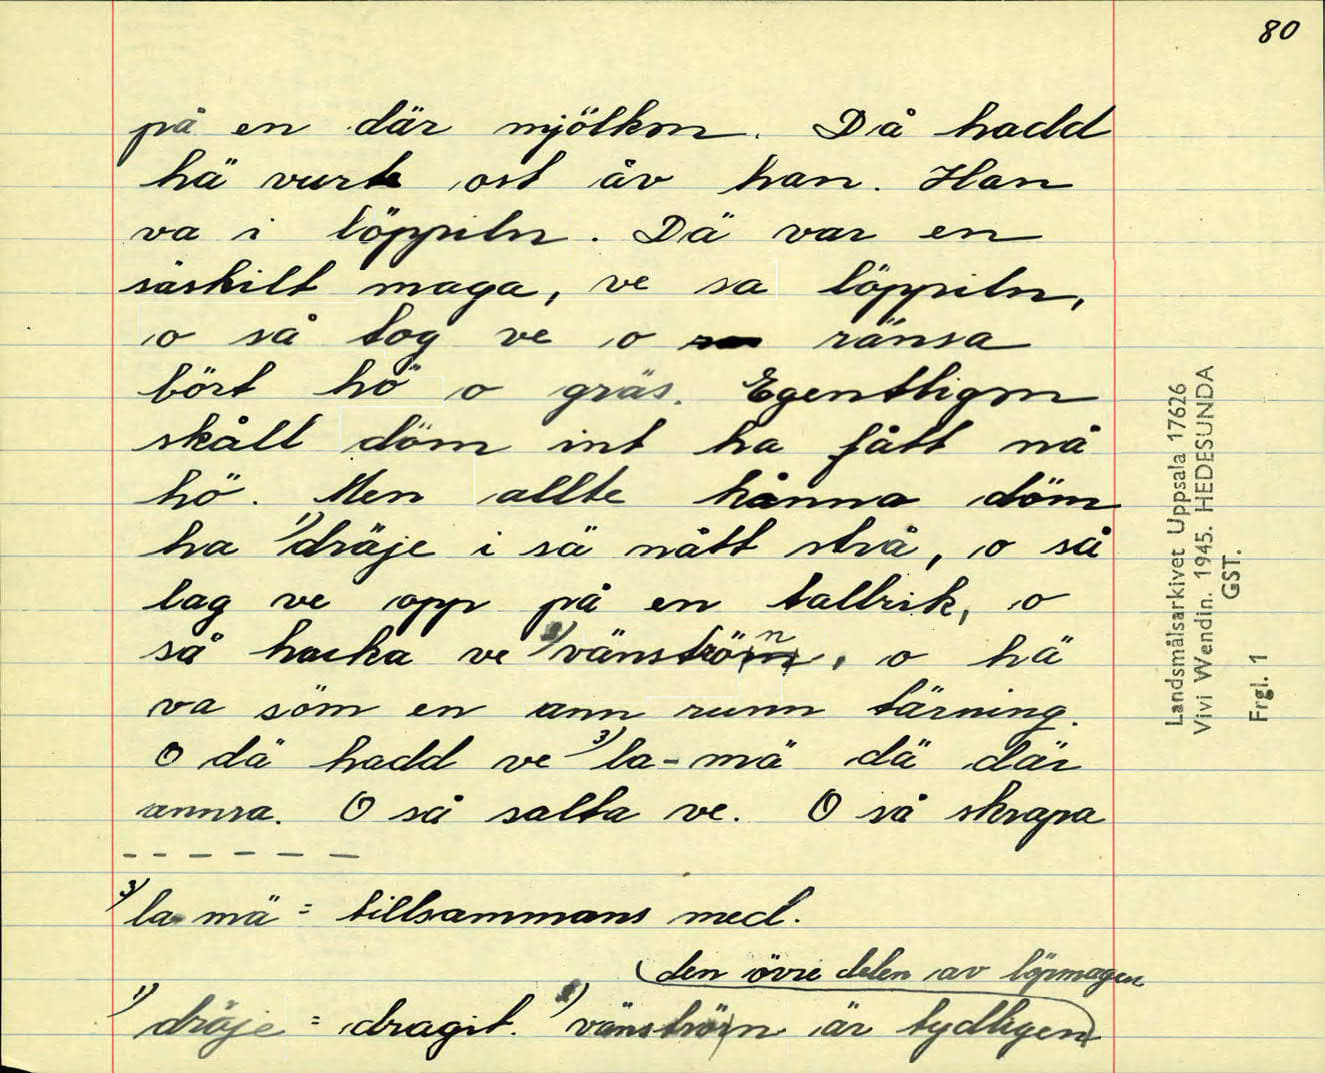 80
på en där mjölkm. Då hadd
hä vurte ost åv han. Han
va i löppiln. Dä var en
säskilt maga, ve sa löppiln,
o så tog ve o ränsa
bört hö o gräs. Egentligm
skållt döm int ha fått nå
hö. Men allte hånna döm
ha 1) dräje i sä nått strå, o så
lag ve opp på en tallrik, o
så hacka ve 2) vänströn, o hä
va söm en ann runn tärning.
O dä hadd ve 3) la-mä dä där
annra. O så salta ve. O så skrapa
3) la mä = tillsammans med.
(den övre delen av löpmagen
1) dräje = dragit. 2) vänströn är tydligen)
Landsmålsarkivet Uppsala 17626
Vivi Wendin. 1945. HEDESUNDA
GST.
Frgl. 1